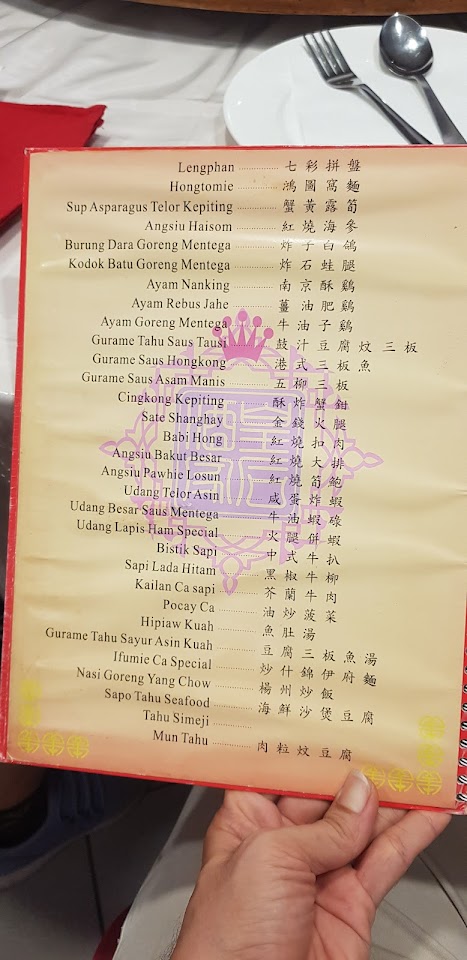 Lengphan ............ 七彩拼盤
Hongtomie ............ 鴻圖窩麵
Sup Asparagus Telor Kepiting ............ 蟹黃露荀
Angsiu Haisom ............ 紅燒海參
Burung Dara Goreng Mentega ............ 炸子白鴿
Kodok Batu Goreng Mentega ............ 炸石蛙腿
Ayam Nanking ............ 南京酥鷄
Ayam Rebus Jahe ............ 薑油肥鷄
Ayam Goreng Mentega ............ 牛油子鷄
Gurame Tahu Saus Tausi ............ 鼓汁豆腐炆三板
Gurame Saus Hongkong ............ 港式三板魚
Gurame Saus Asam Manis ............ 五柳三板
Cingkong Kepiting ............ 酥炸蟹鉗
Sate Shanghay ............ 金錢火腿
Babi Hong ............ 紅燒扣肉
Angsiu Bakut Besar ............ 紅燒大排
Angsiu Pawhie Losun ............ 紅燒筍鮑
Udang Telor Asin ............ 咸蛋炸蝦
Udang Besar Saus Mentega ............ 牛油蝦碌
Udang Lapis Ham Special ............ 火腿併蝦
Bistik Sapi ............ 中式牛扒
Sapi Lada Hitam ............ 黑椒牛柳
Kailan Ca sapi ............ 芥蘭牛肉
Pocay Ca ............ 油炒菠菜
Hipiaw Kuah ............ 魚肚湯
Gurame Tahu Sayur Asin Kuah ............ 豆腐三板魚湯
Ifumie Ca Special ............ 炒什錦伊府麵
Nasi Goreng Yang Chow ............ 楊州炒飯
Sapo Tahu Seafood ............ 海鮮沙煲豆腐
Tahu Simeji ............
Mun Tahu ............ 肉粒炆豆腐